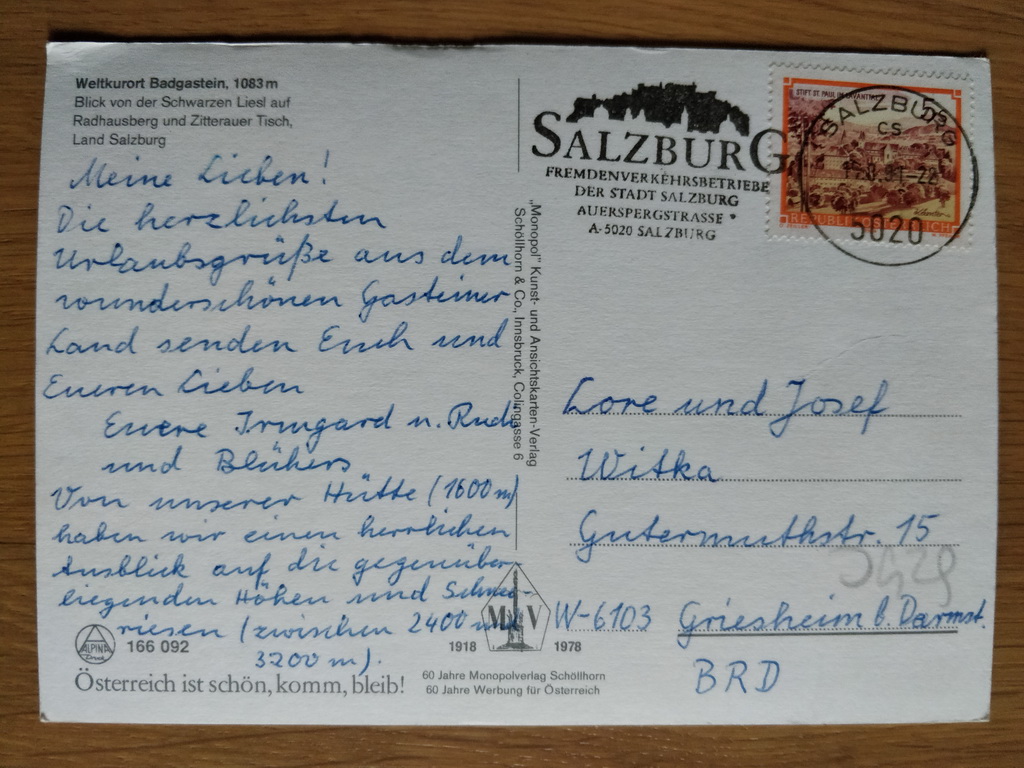 Weltkurort Badgastein, 1083 m
Blick von der Schwarzen Liesl auf
Radhausberg und Zitterauer Tisch,
Land Salzburg
Meine Lieben!
Die herzlichsten
Urlaubsgrüße aus dem
wunderschönen Gasteiner
Land senden Euch und
Eueren Lieben
Euere Irmgard u. Rudi
und Blühers
Von unserer Hütte (1600 m)
haben wir einen herrlichen
Ausblick auf die gegenüber
liegenden Höhen und Schnee-
riesen (zwischen 2400 und
3200 m).
ALPINA
166 092
Österreich ist schön, komm, bleib!
„Monopol" Kunst- und Ansichtskarten-Verlag
Schöllhorn & Co., Innsbruck, Colingasse 6
M V
1918 1978
60 Jahre Monopolverlag Schöllhorn
60 Jahre Werbung für Österreich
SALZBURG
FREMDENVERKEHRSBETRIEBE
DER STADT SALZBURG
AUERSPERGSTRASSE
A-5020 SALZBURG
STIFT ST. PAUL IM LAVANTTAL
REPUBLIK ÖSTERREICH
SALZBURG
CS
5020
Lore und Josef
Witka
Gutermuthstr. 15
W-6103 Griesheim b. Darmst.
BRD